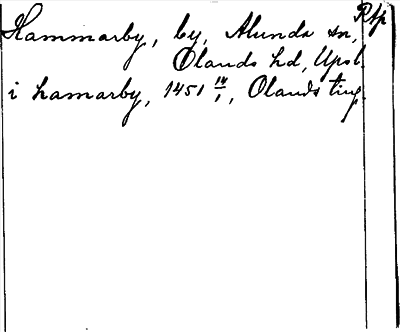 Hammarby, by, Alunda sn, Rtp
Olands hd, Upsl.
i hamarby, 1451 14/1, Olands ting.